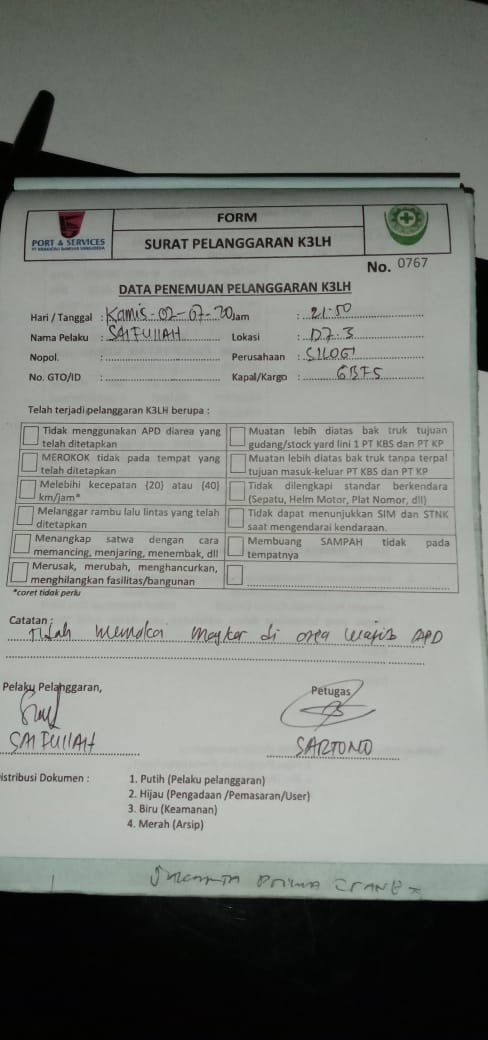 PORT & SERVICES
FORM
SURAT PELANGGARAN K3LH
No. 0767
DATA PENEMUAN PELANGGARAN K3LH
Hari / Tanggal : Kamis-02-07-20 Jam : 21.50
Nama Pelaku : SAIFULLAH Lokasi : D7.3
Nopol. : Perusahaan : SILOG
No. GTO/ID : Kapal/Kargo :
Telah terjadi pelanggaran K3LH berupa :
Tidak menggunakan APD diarea yang telah ditetapkan
Muatan lebih diatas bak truk tujuan gudang/stock yard lini 1 PT KBS dan PT KP
MEROKOK tidak pada tempat yang telah ditetapkan
Muatan lebih diatas bak truk tanpa terpal tujuan masuk-keluar PT KBS dan PT KP
Melebihi kecepatan (20) atau (40) km/jam*
Tidak dilengkapi standar berkendara (Sepatu, Helm Motor, Plat Nomor, dll)
Melanggar rambu lalu lintas yang telah ditetapkan
Tidak dapat menunjukkan SIM dan STNK saat mengendarai kendaraan.
Menangkap satwa dengan cara memancing, menjaring, menembak, dll
Membuang SAMPAH tidak pada tempatnya
Merusak, merubah, menghancurkan, menghilangkan fasilitas/bangunan
*coret tidak perlu
Catatan :
Tidak memakai masker di area wajib APD
Pelaku Pelanggaran, Petugas
SAIFULLAH SARTONO
istribusi Dokumen : 1. Putih (Pelaku pelanggaran)
2. Hijau (Pengadaan /Pemasaran/User)
3. Biru (Keamanan)
4. Merah (Arsip)